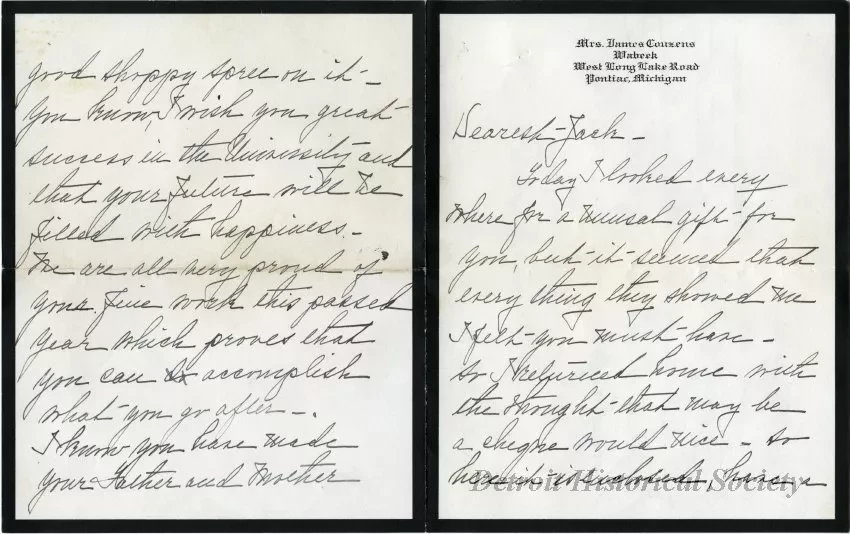 Mrs. James Couzens
Wabeek
West Long Lake Road
Pontiac, Michigan
Dearest Jack –
Today I looked every
where for a unusal gift for
you, but it seemed that
every thing they showed me
I felt you must have –
so I returned home with
the thought that may be
a cheque would nice – so
here it is enclosed, have a
good shoppy spree on it –
You know, I wish you great
success in the University and
that your future will be
filled with happiness. –
We are all very proud of
your fine work this passed
year which proves that
you can accomplish
what you go after – .
I know you have made
your Father and Mother
Detroit Historical Society